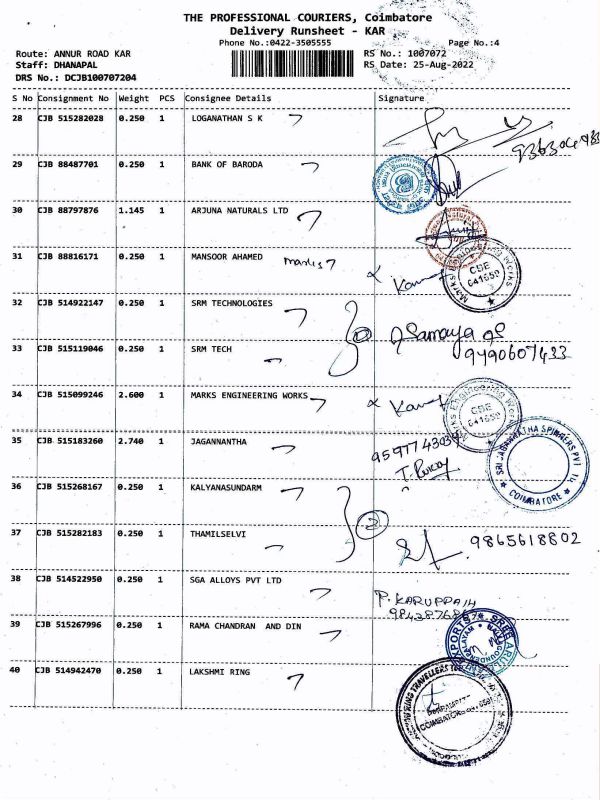 THE PROFESSIONAL COURIERS, Coimbatore
Delivery Runsheet - KAR
Phone No.:0422-3505555 Page No.:4
Route: ANNUR ROAD KAR RS No.: 1007072
Staff: DHANAPAL RS Date: 25-Aug-2022
DRS No.: DCJB100707204
S No Consignment No Weight PCS Consignee Details Signature
28 CJB 515282028 0.250 1 LOGANATHAN S K
29 CJB 88487701 0.250 1 BANK OF BARODA
30 CJB 88797876 1.145 1 ARJUNA NATURALS LTD
31 CJB 88816171 0.250 1 MANSOOR AHAMED
CBE 641659
32 CJB 514922147 0.250 1 SRM TECHNOLOGIES
33 CJB 515119046 0.250 1 SRM TECH 9490607433
34 CJB 515099246 2.600 1 MARKS ENGINEERING WORKS
Marks Engineering Works CBE 641659
35 CJB 515183260 2.740 1 JAGANNANTHA
SRI JAGANNATHA SPINNERS PVT. COIMBATORE
36 CJB 515268167 0.250 1 KALYANASUNDARM
2
37 CJB 515282183 0.250 1 THAMILSELVI 9865618802
38 CJB 514522950 0.250 1 SGA ALLOYS PVT LTD P. KARUPPAIH
39 CJB 515267996 0.250 1 RAMA CHANDRAN AND DIN
40 CJB 514942470 0.250 1 LAKSHMI RING